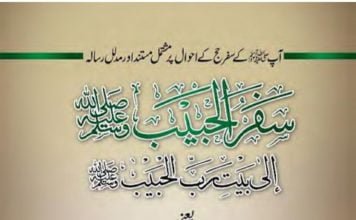 آپ ﷺ کے سفر حج کے احوال پر مشتمل مستند اور مدلل رسالہ
سفر الحبیب ﷺ
إلی بیت ربّ الحبیب ﷺ
یعنی